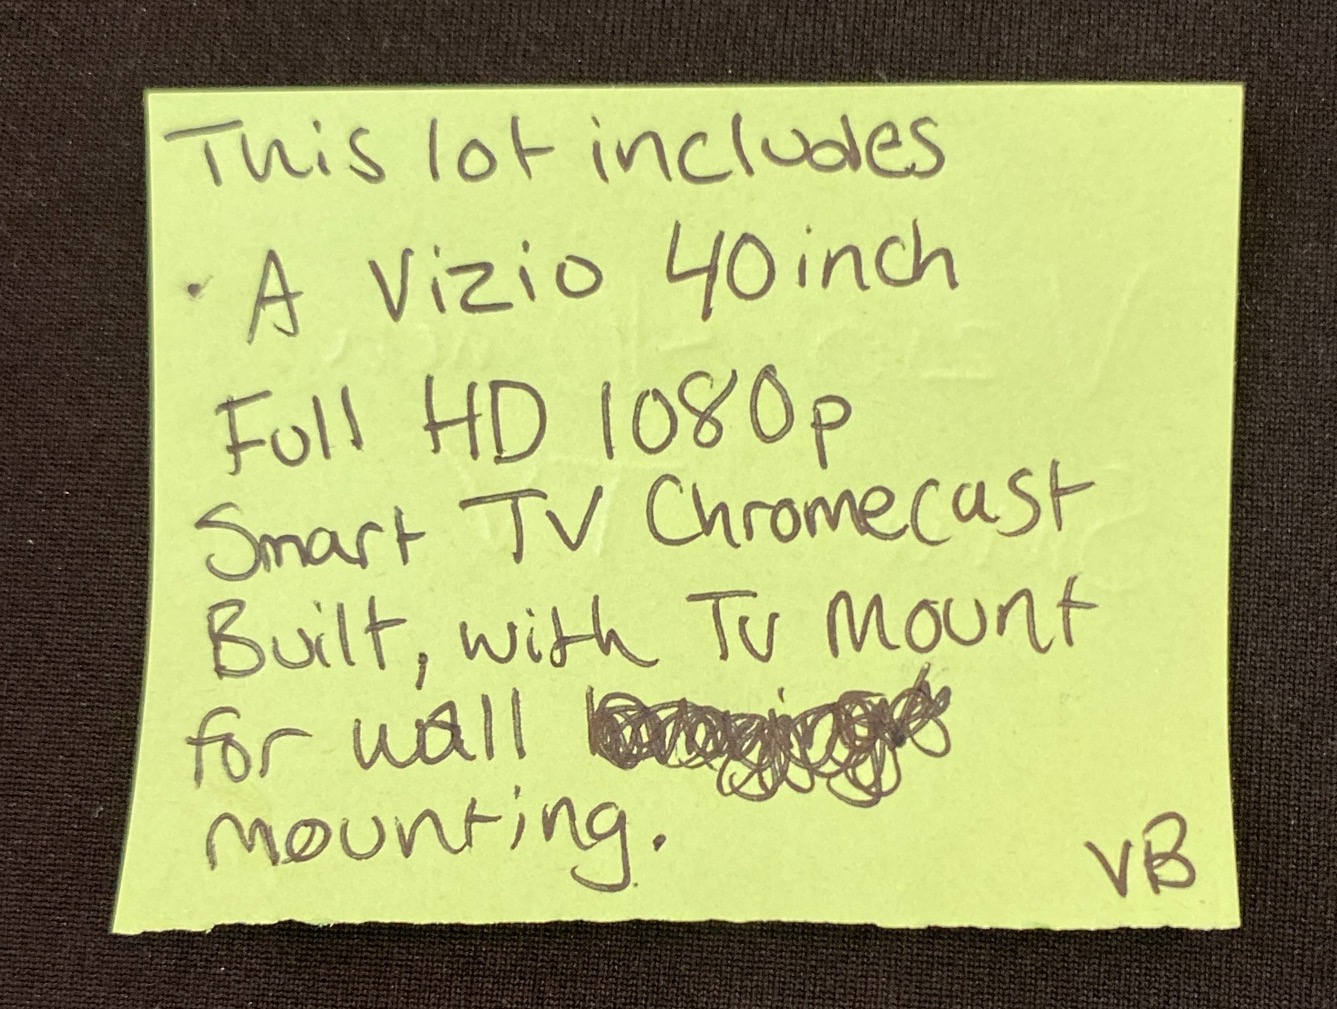 This lot includes
· A Vizio 40inch
Full HD 1080p
Smart TV Chromecast
Built, with TV Mount
for wall
mounting.
VB